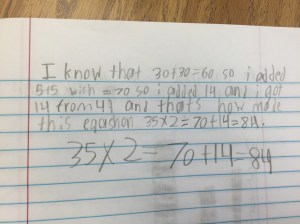 I know that 30+30=60 so i added
5+5 wich = 70 so i added 14 and i got
14 from 42 and that's how made
this eqaushon 35x2=70+14=84.
35x2=70+14=84